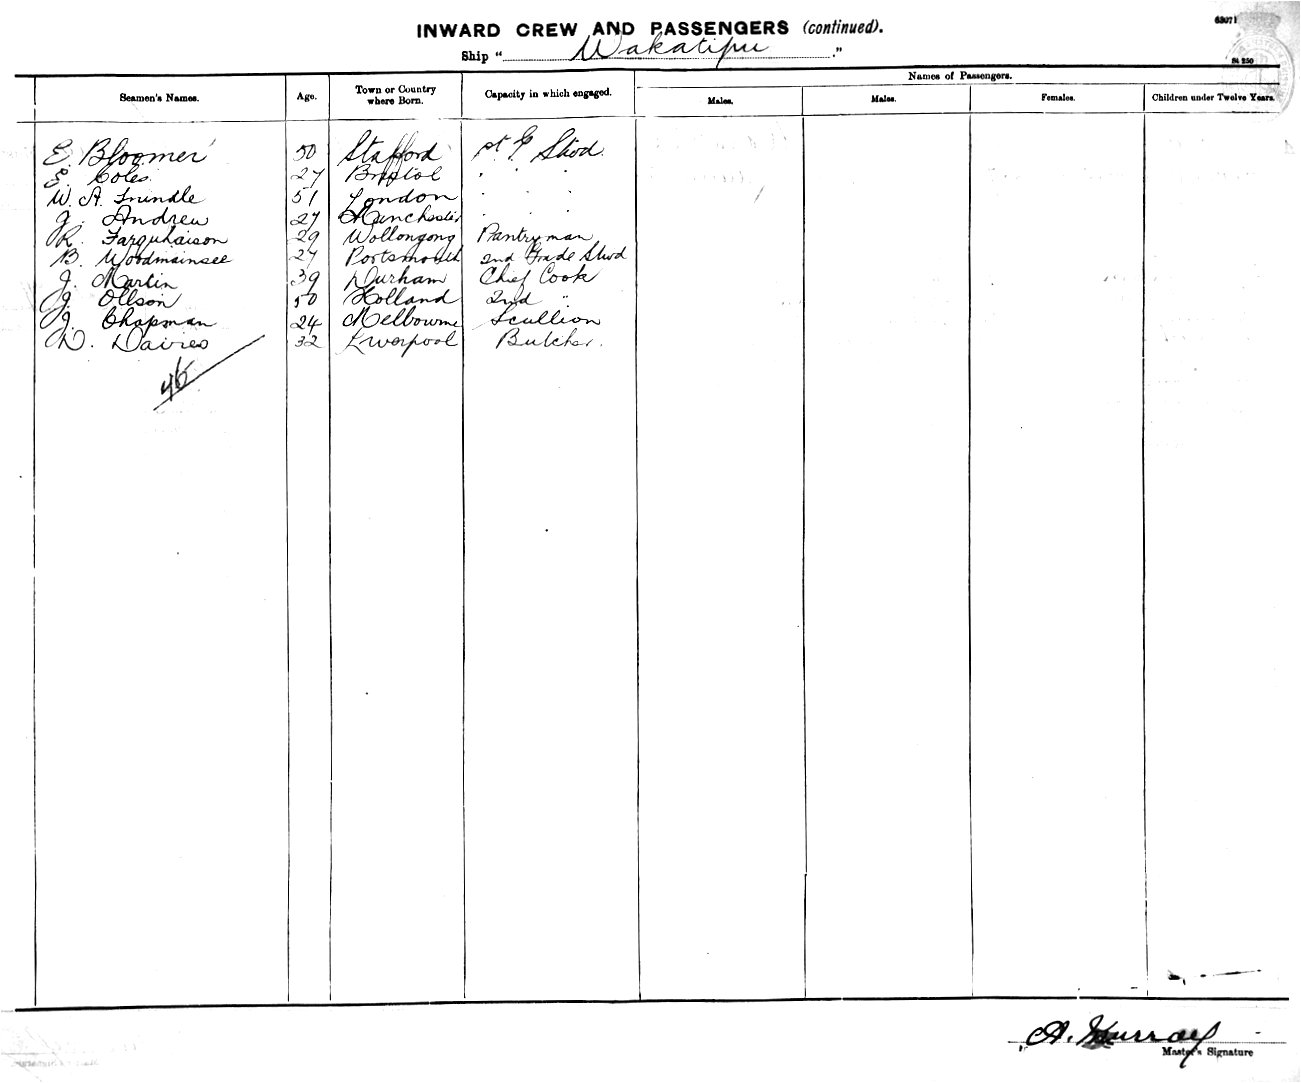 INWARD CREW AND PASSENGERS (continued).
63071
St 250
Ship "Wakatipu."
Names of Passengers.
Seamen's Names. Age. Town or Country where Born. Capacity in which engaged. Males. Males. Females. Children under Twelve Years.
E. Bloomer 50 Stafford Stwd.
Coles 27 Bristol " " "
W. A. Trindle 51 London " " "
J. Andrew 27 Manchester " " "
R. Farquharson 29 Wollongong Pantryman
B. Woodmansee 27 Portsmouth 2nd Grade Stwd
J. Martin 39 Durham Chief Cook
J. Ollson 50 Holland 2nd "
J. Chapman 24 Melbourne Scullion
D. Davies 32 Liverpool Butcher.
46
A. Murray
Master's Signature